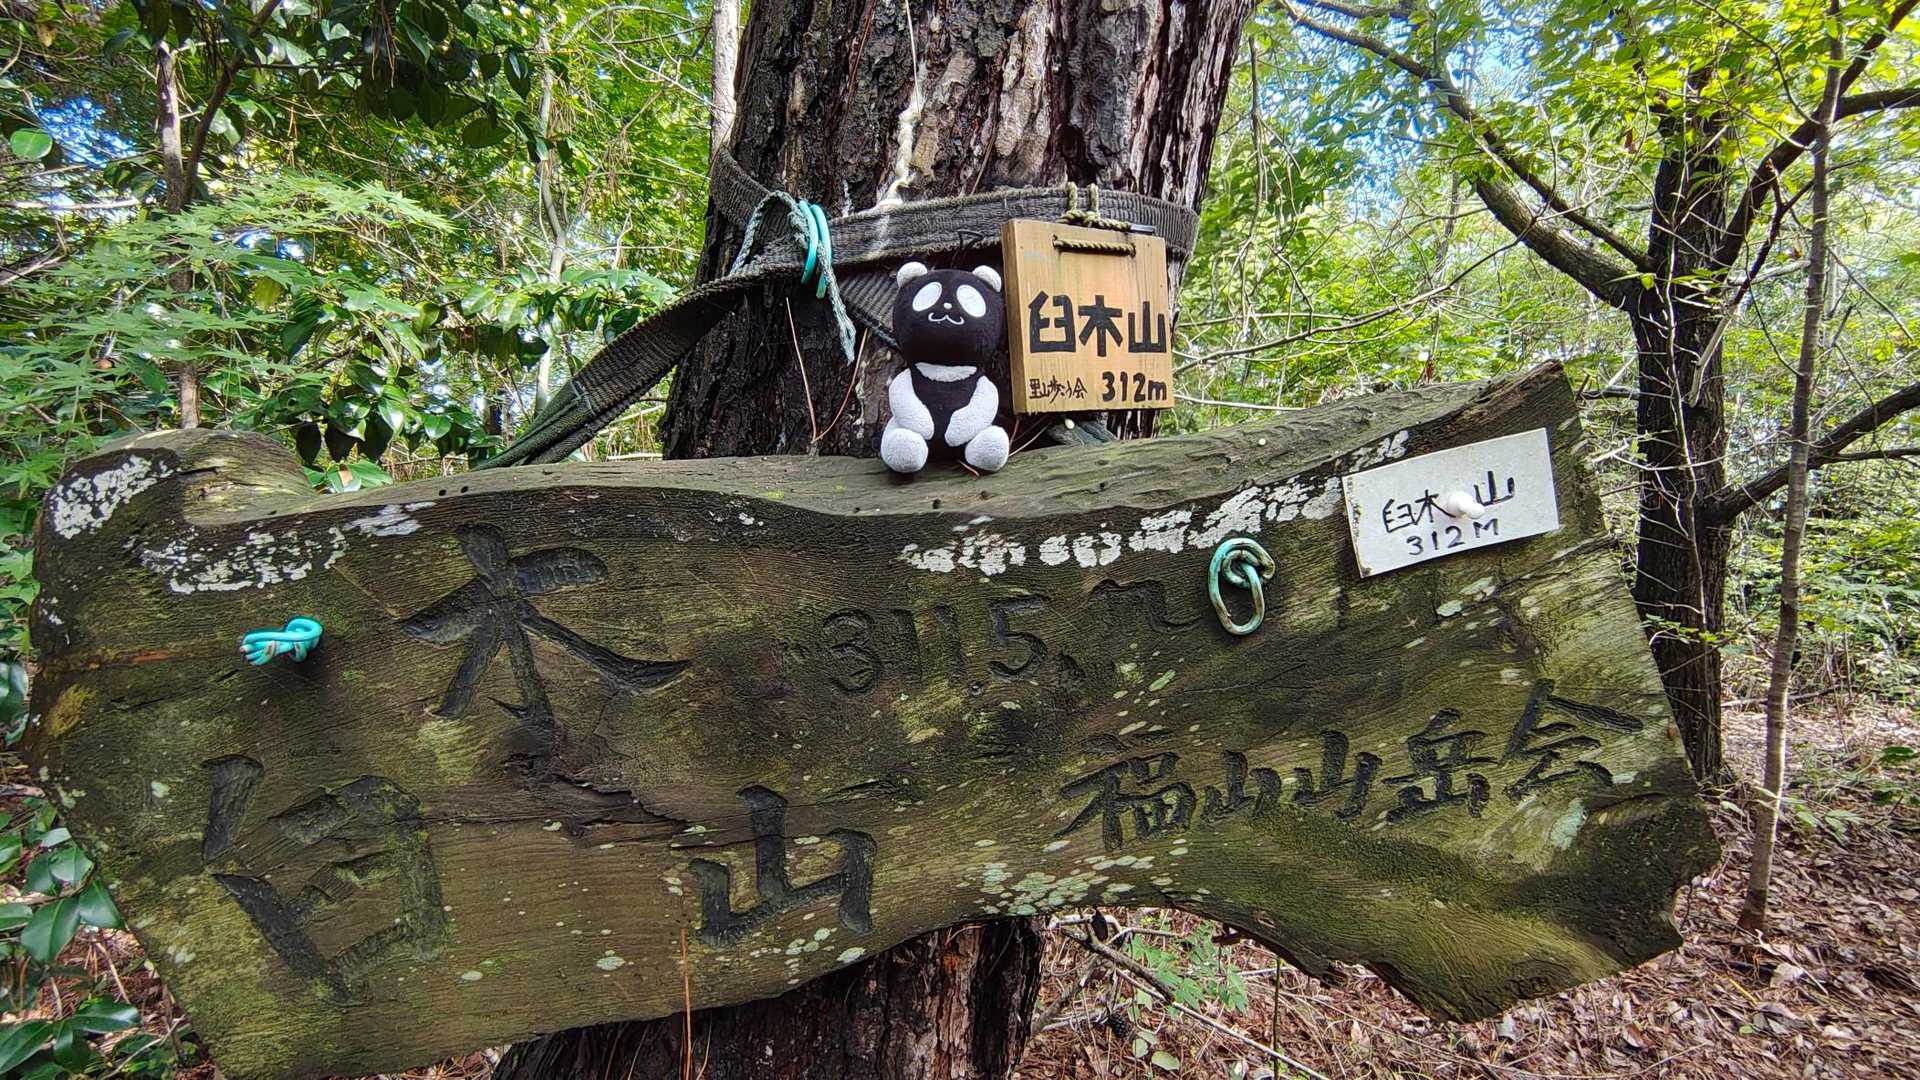 臼木山
里山歩こう会 312m
臼木山
312M
311.5m
臼木山
福山山岳会